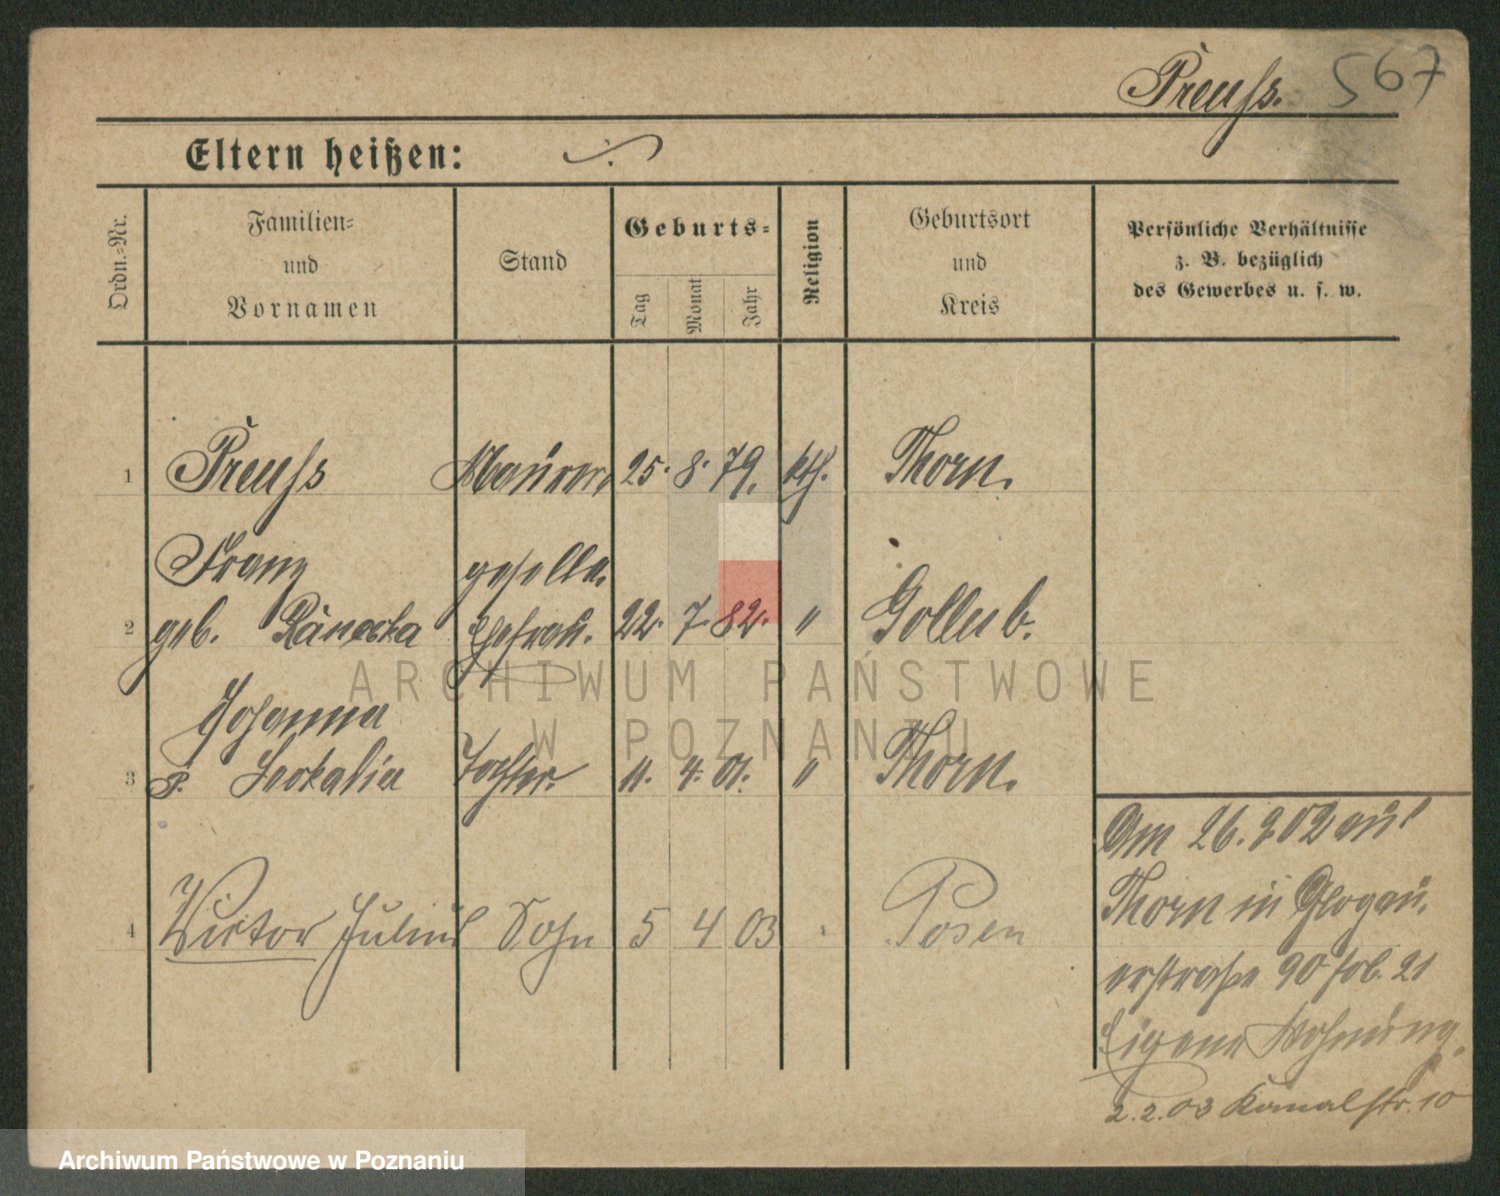 Preuß. 567
Eltern heißen: ·/·
Ordn.=Nr.
Familien=
und
Vornamen
Stand
Geburts=
Tag
Monat
Jahr
Religion
Geburtsort
und
Kreis
Persönliche Verhältnisse
z. B. bezüglich
des Gewerbes u. s. w.
1 Preuß Maurer 25. 8. 79. kth. Thorn.
Franz geselle.
2 geb. Ehefrau. 22. 7. 82. " Gollub.
Johanna
3 P. Leokalia Tochter. 11. 4. 01. " Thorn.
4 Victor Julius Sohn 5 4 03 Posen
Am 26. 9 02 aus
Thorn in Glogau.
erstraße 90 21
Eigene Wohnung.
2.2.03 Kanalstr. 10
ARCHIWUM PAŃSTWOWE
W POZNANIU
Archiwum Państwowe w Poznaniu